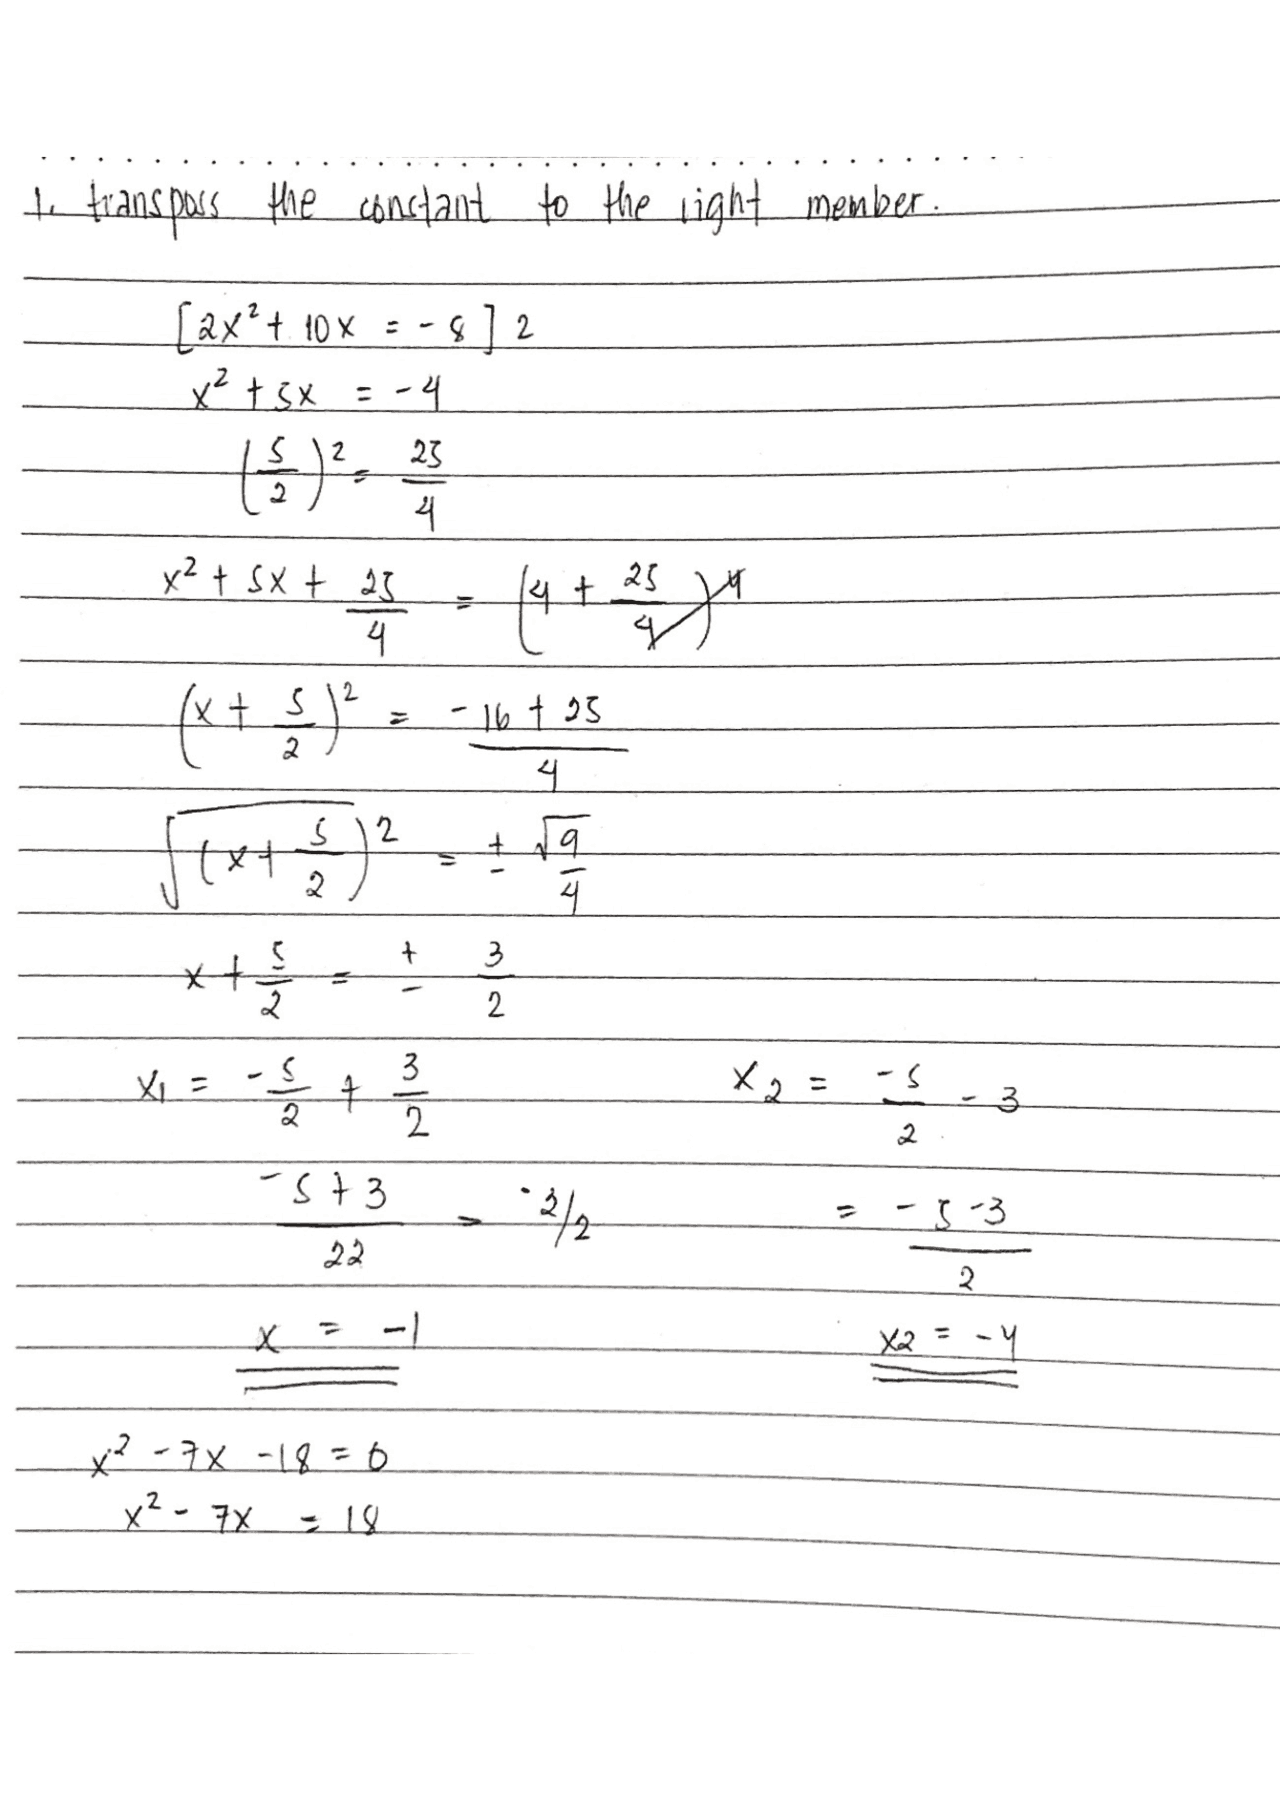 1. transposs the constant to the right member.
[2x² + 10x = -8] 2
x² + 5x = -4
(5/2)² = 25/4
x² + 5x + 25/4 = (4 + 25/4) 4
(x + 5/2)² = -16 + 25/4
√(x + 5/2)² = ± √9/4
x + 5/2 = ± 3/2
x1 = -5/2 + 3/2 x2 = -5/2 - 3
-5+3/22 = -2/2 = -5-3/2
x = -1 x2 = -4
x² - 7x - 18 = 0
x² - 7x = 18